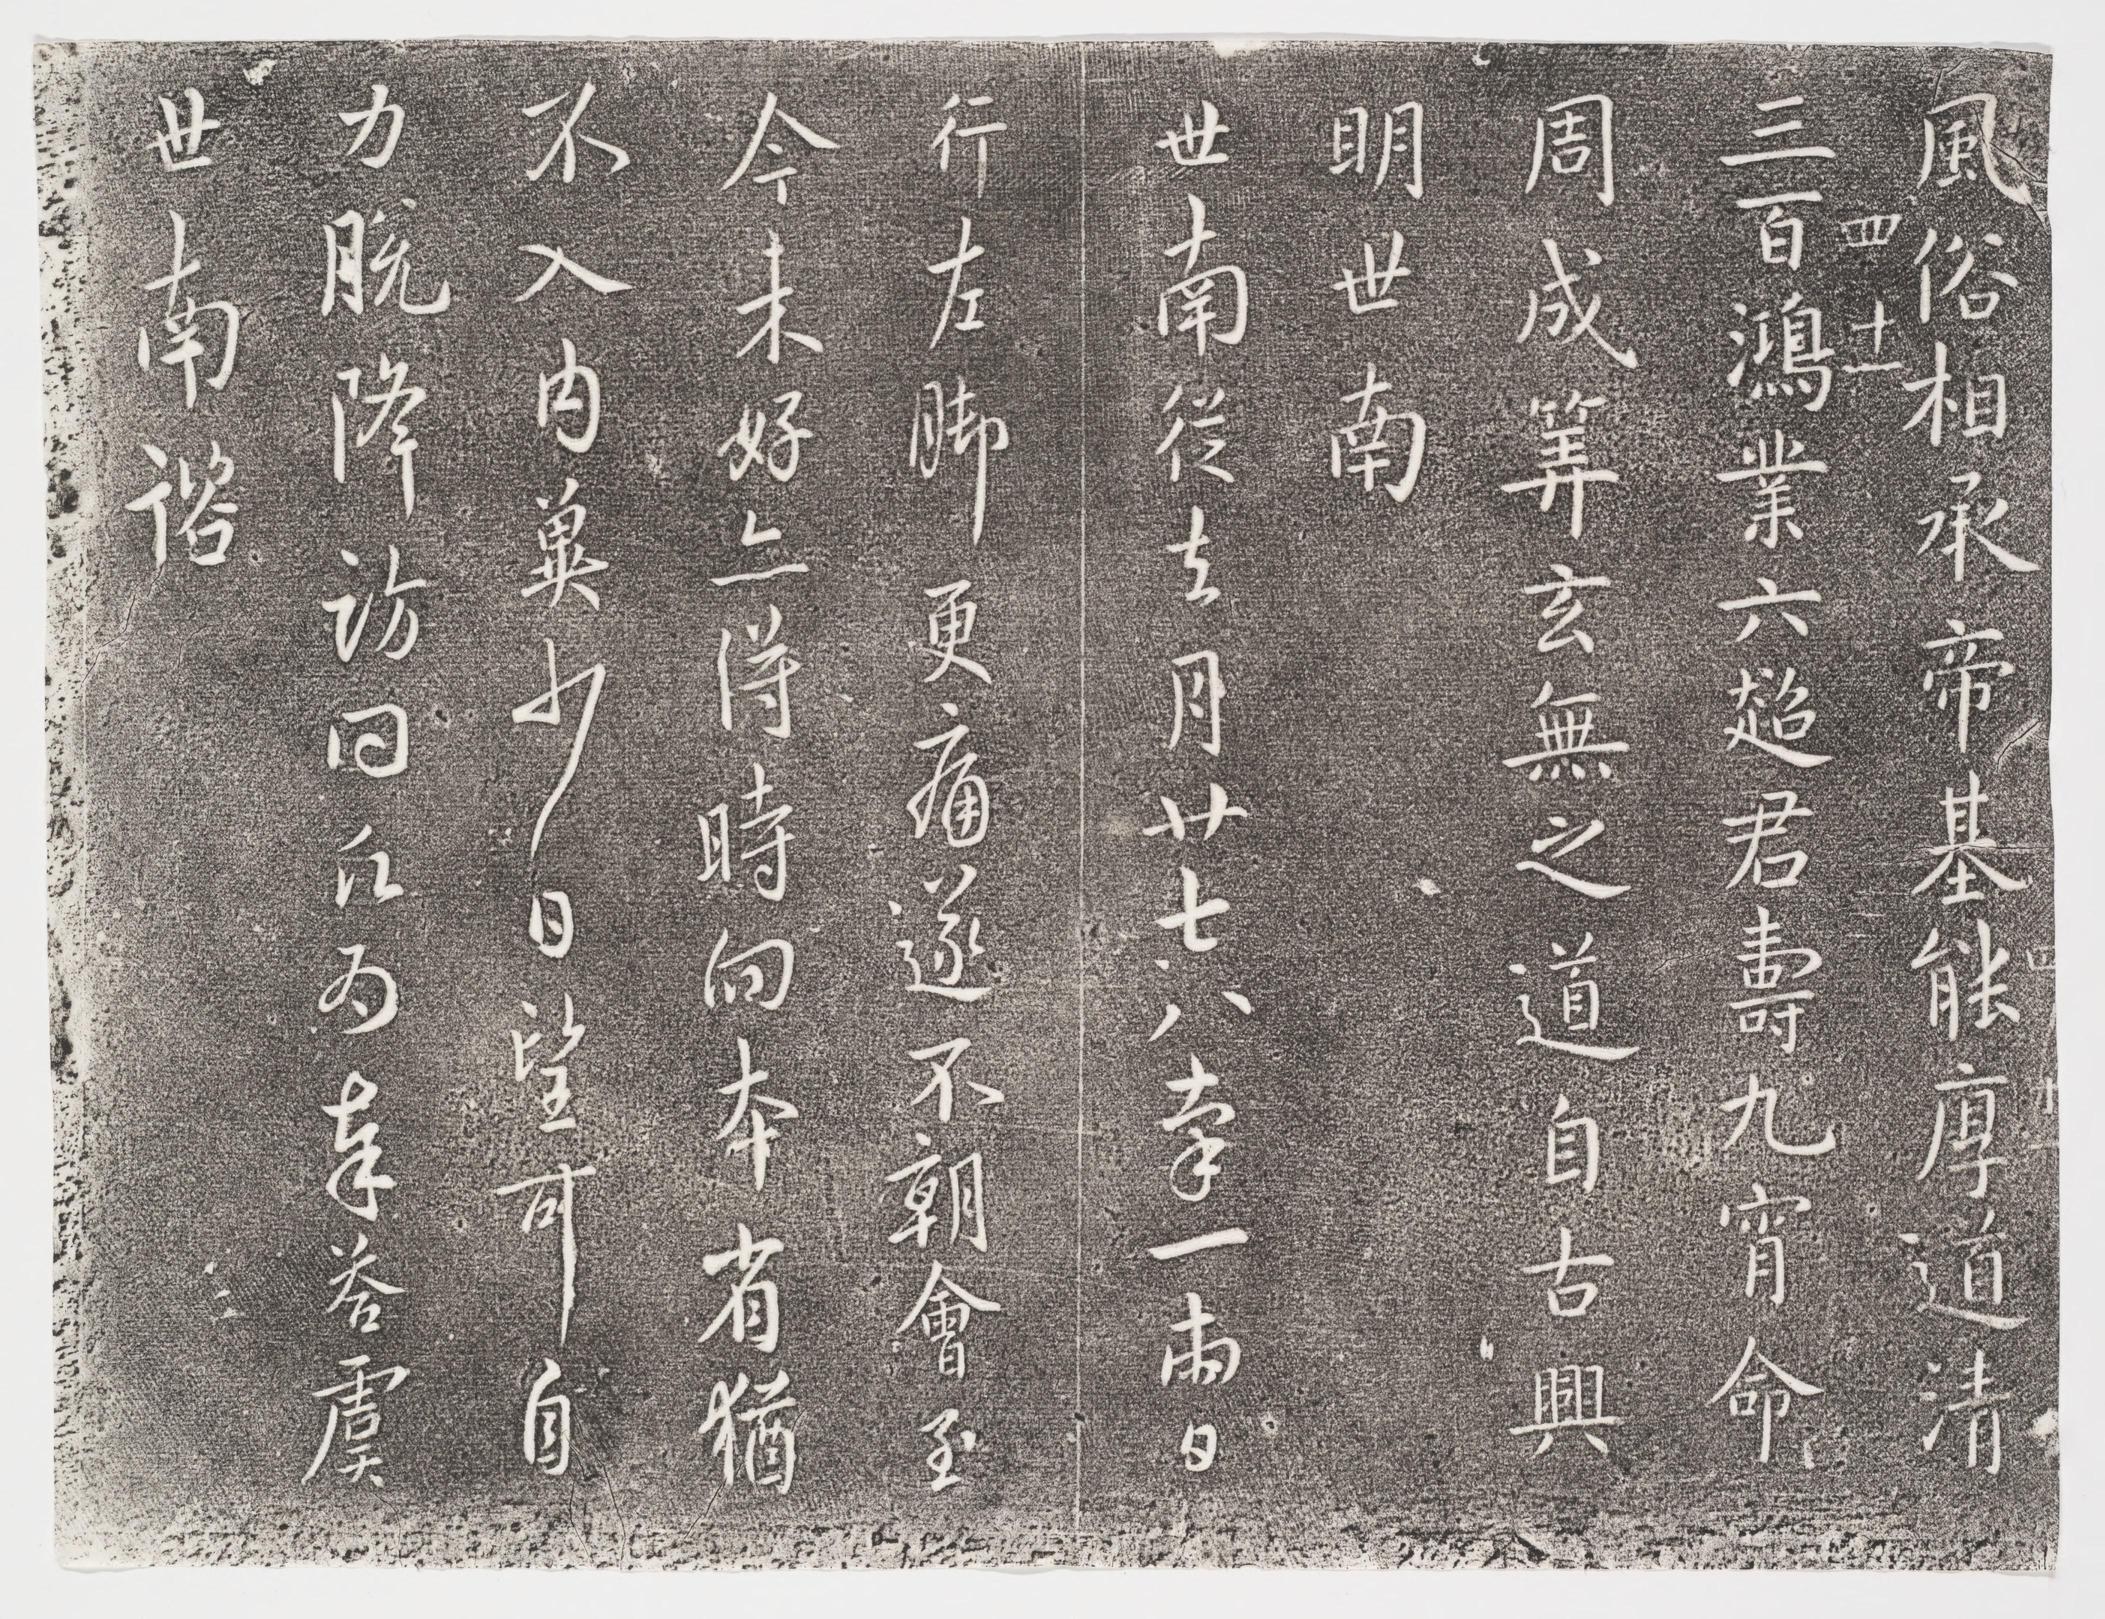 風俗相承帝基能厚道清
四 十二
三百鴻業六超君壽九宵命
周成筭玄無之道自古興
明世南
世南從去月廿七八率一兩日
行左脚更痛遂不朝會至
今未好亦得時向本省猶
不入內冀少日望可自
力脫降訪問為奉荅虞
世南諮